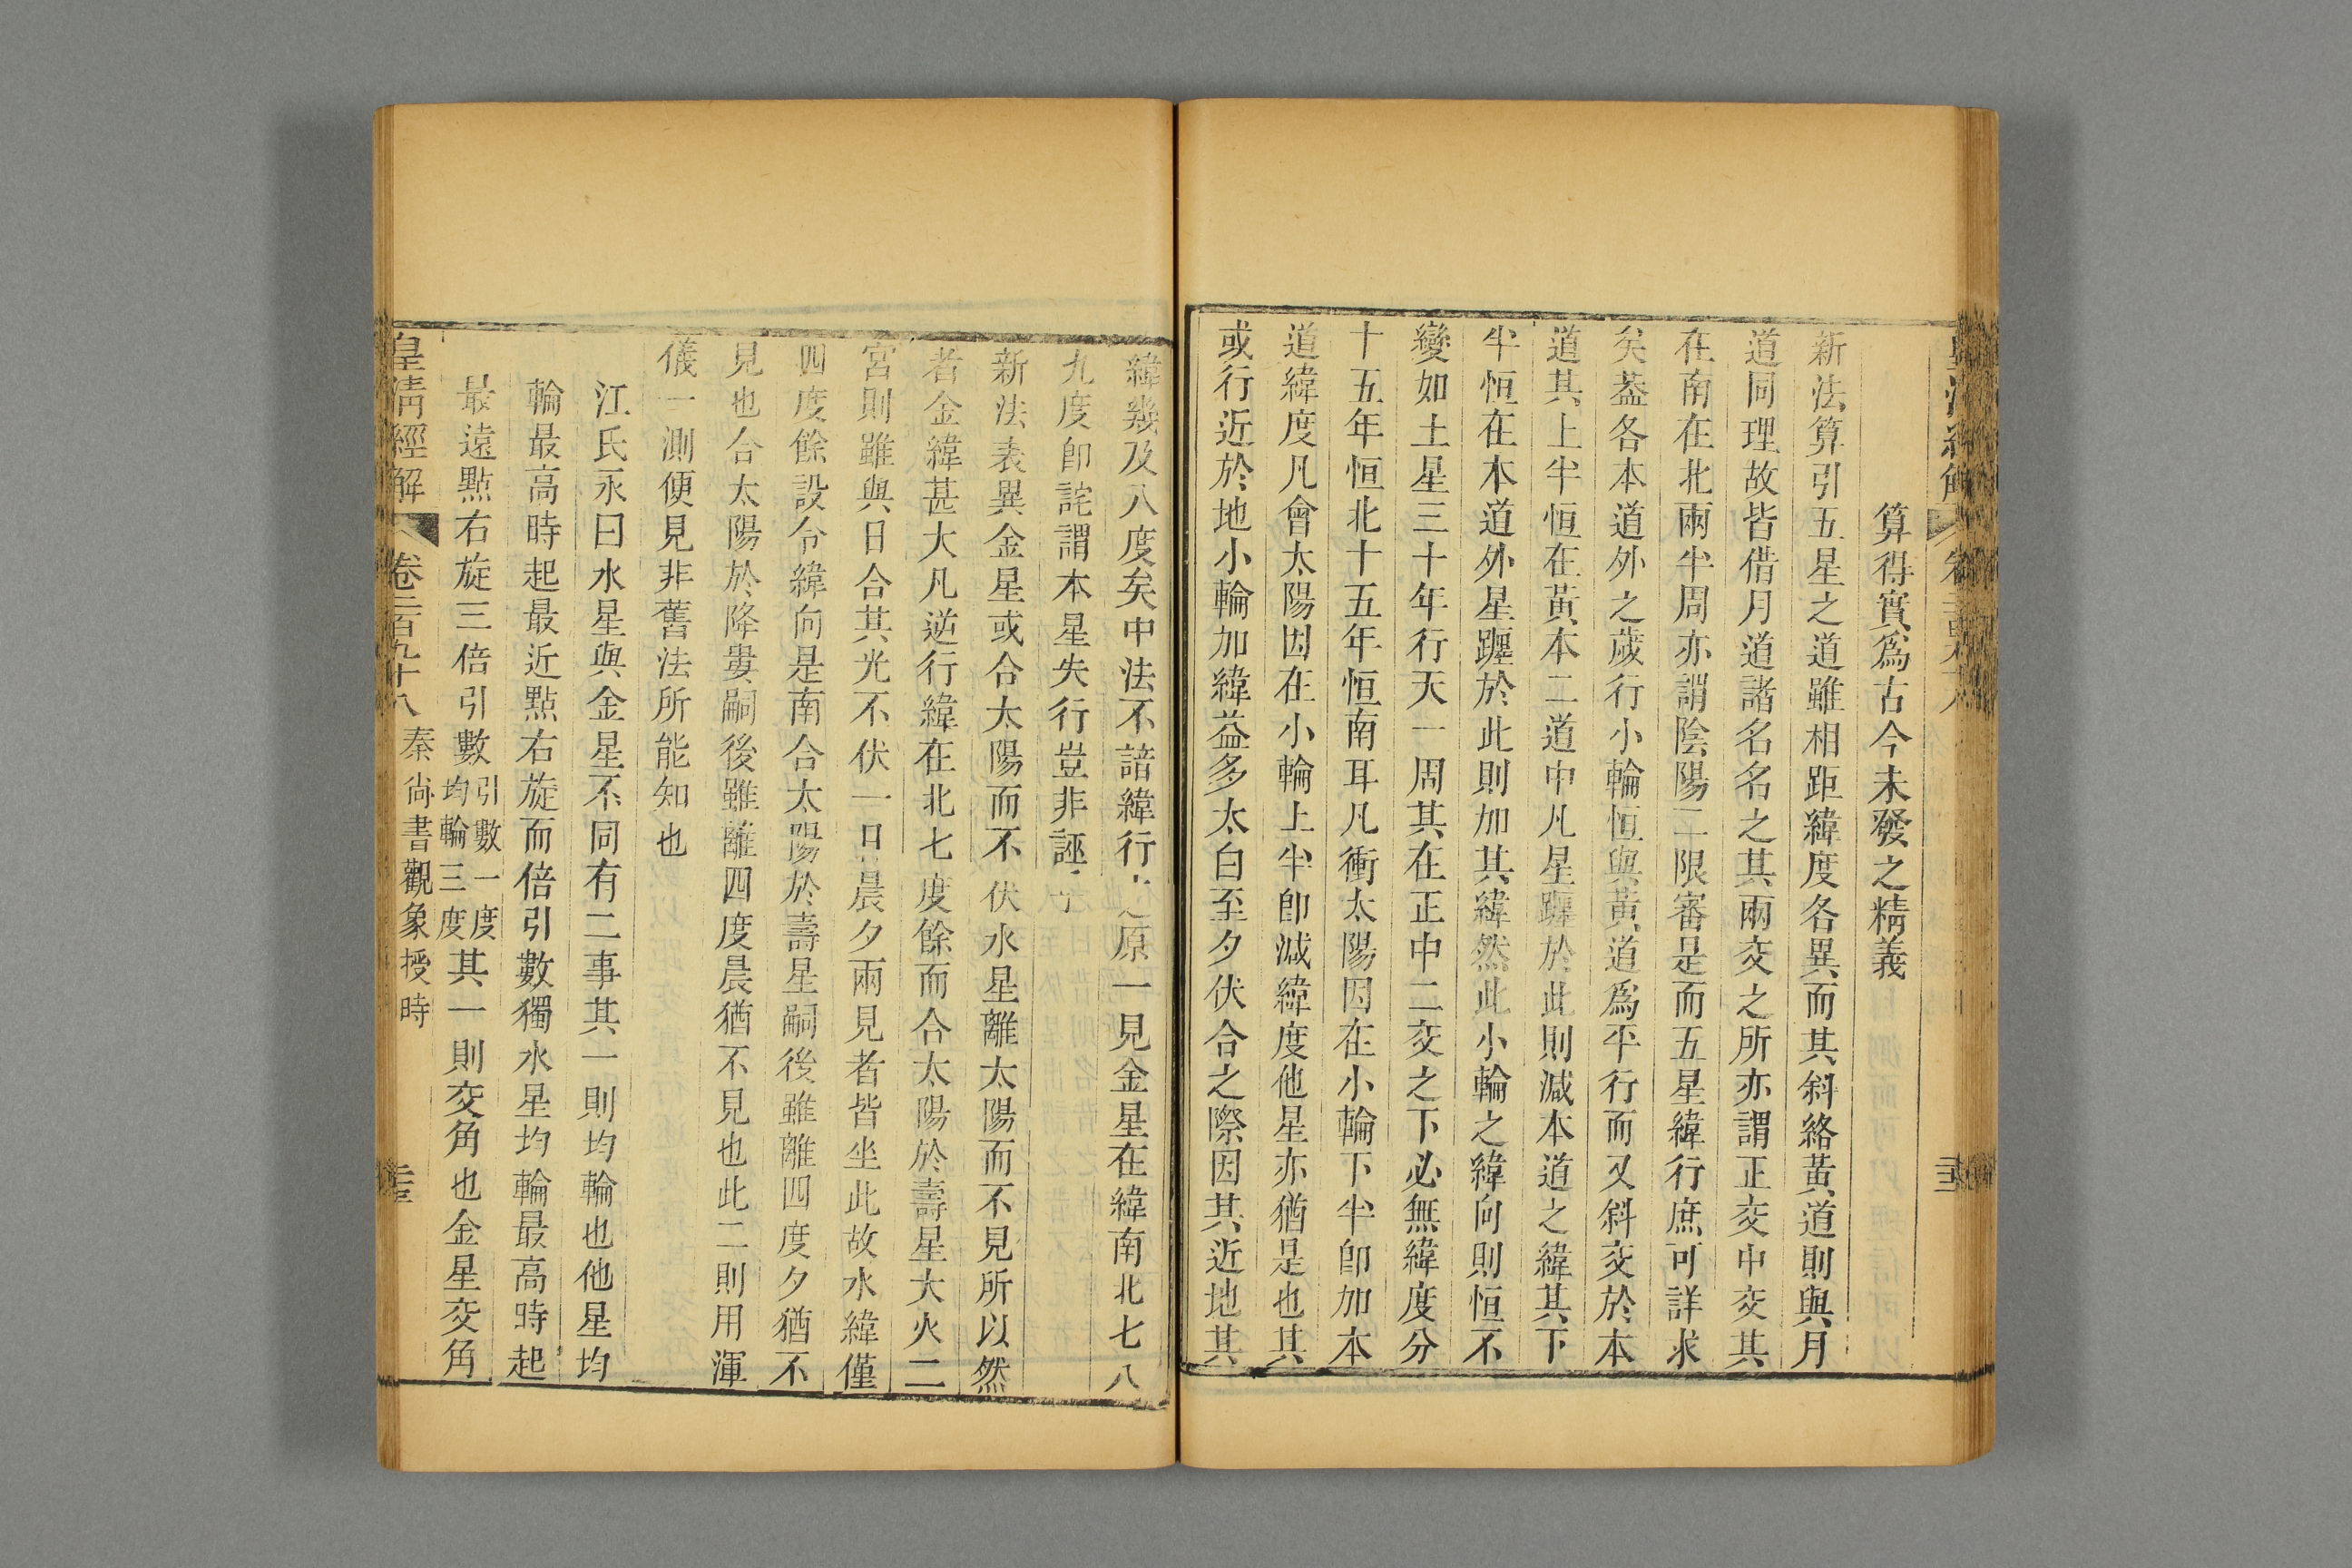 算得實爲古今未發之精義
新法算引五星之道雖相距緯度各異而其斜絡黃道則與月
道同理故皆借月道諸名名之其兩交之所亦謂正交中交其
在南在北兩半周亦謂陰陽二限審是而五星緯行庶可詳求
矣葢各本道外之歲行小輪恒與黃道爲平行而又斜交於本
道其上半恒在黃本二道中凡星躔於此則減本道之緯其下
半恒在本道外星躔於此則加其緯然此小輪之緯向則恒不
變如土星三十年行天一周其在正中二交之下必無緯度分
十五年恒北十五年恒南耳凡衝太陽因在小輪下半卽加本
道緯度凡會太陽因在小輪上半卽減緯度他星亦猶是也其
或行近於地小輪加緯益多太白至夕伏合之際因其近地其
緯幾及八度矣中法不諳緯行之原一見金星在緯南北七八
九度卽詫謂本星失行豈非誣
新法表異金星或合太陽而不伏水星離太陽而不見所以然
者金緯甚大凡逆行緯在北七度餘而合太陽於壽星大火二
宮則雖與日合其光不伏一日晨夕兩見者皆坐此故水緯僅
四度餘設令緯向是南合太陽於壽星嗣後雖離四度夕猶不
見也合太陽於降婁嗣後雖離四度晨猶不見也此二則用渾
儀一測便見非舊法所能知也
江氏永曰水星與金星不同有二事其一則均輪也他星均
輪最高時起最近點右旋而倍引數獨水星均輪最高時起
最遠點右旋三倍引數引數一度均輪三度其一則交角也金星交角
皇清經解 卷二百九十八 秦尚書觀象授時